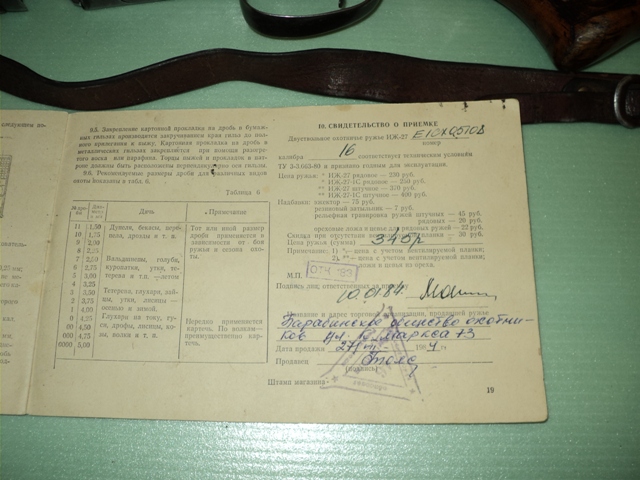 9.5. Закрепление картонной прокладки на дроби в бумаж-
ных гильзах производится закручиванием края гильз до пол-
ного прилегания к пыжу. Картонная прокладка на дробь в
металлических гильзах закрепляется при помощи разогре-
того воска или парафина. Торцы пыжей и прокладок в пат-
роне должны быть расположены перпендикулярно оси гильзы.
9.6. Рекомендуемые размеры дроби для различных видов
охоты показаны в табл. 6.
Таблица 6
Дичь
Примечание
11 1,50
10 1,75
9 2,00
8 2,25
7 2,50
6 2,75
5 3,00
4 3,25
3 3,50
2 3,75
1 4,00
0 4,25
00 4,50
000 4,75
0000 5,00
Дупеля, бекасы, переп-
пела, дрозды и т. п.
Вальдшнепы, голуби,
куропатки, утки, те-
терева и т.п. летом
Тетерева, глухари, зай-
цы, утки, лисицы —
осенью и зимой.
Глухари на току, гу-
си, дрофы, лисицы, ко-
зы, волки и т. п.
Тот или иной размер
дроби применяется в
зависимости от боя
ружья и сезона охо-
ты.
Нередко применяется
картечь. По волкам—
преимущественно кар-
течь.
10. СВИДЕТЕЛЬСТВО О ПРИЕМКЕ
Двуствольное охотничье ружье ИЖ-27
номер
калибра 16 соответствует техническим условиям
ТУ 3-3.663-80 и признано годным для эксплуатации.
Цена ружья: ИЖ-27 рядовое — 250 руб.
ИЖ-27-1С рядовое — 250 руб.
ИЖ-27 штучное — 370 руб.
ИЖ-27-1С штучное — 400 руб.
Надбавки: эжектор — 75 руб.
резиновый затыльник — 7 руб.
рельефная тренировка ружей штучных — 45 руб.
рядовых — 20 руб.
ореховые ложе и цевье для рядовых ружей — 22 руб.
Скидка при отсутствии вентилируемой планки — 30 руб.
Цена ружья (сумма) 345р
М.П.
ОТК
Подпись лиц, ответственных за приемку
10.01.84.
Название и адрес магазина, продавшей ружье
Барабинское общество охотни-
ков ул. К. Маркса 73
Дата продажи 27/ 198 г.
Продавец
(подпись)
Штамп магазина
19